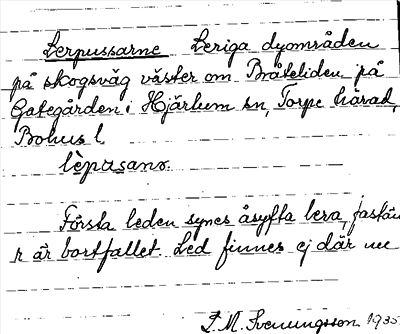 Lerpussarne Leriga dyområden
på skogsväg väster om Bråteliden på
Gategården i Hjärtum sn, Torpe härad,
Bohus l.
lèpusanr.
Första leden synes åsyfta lera, fastän
r är bortfallet. Led finnes ej där nu
T. M. Svenungsson 1935